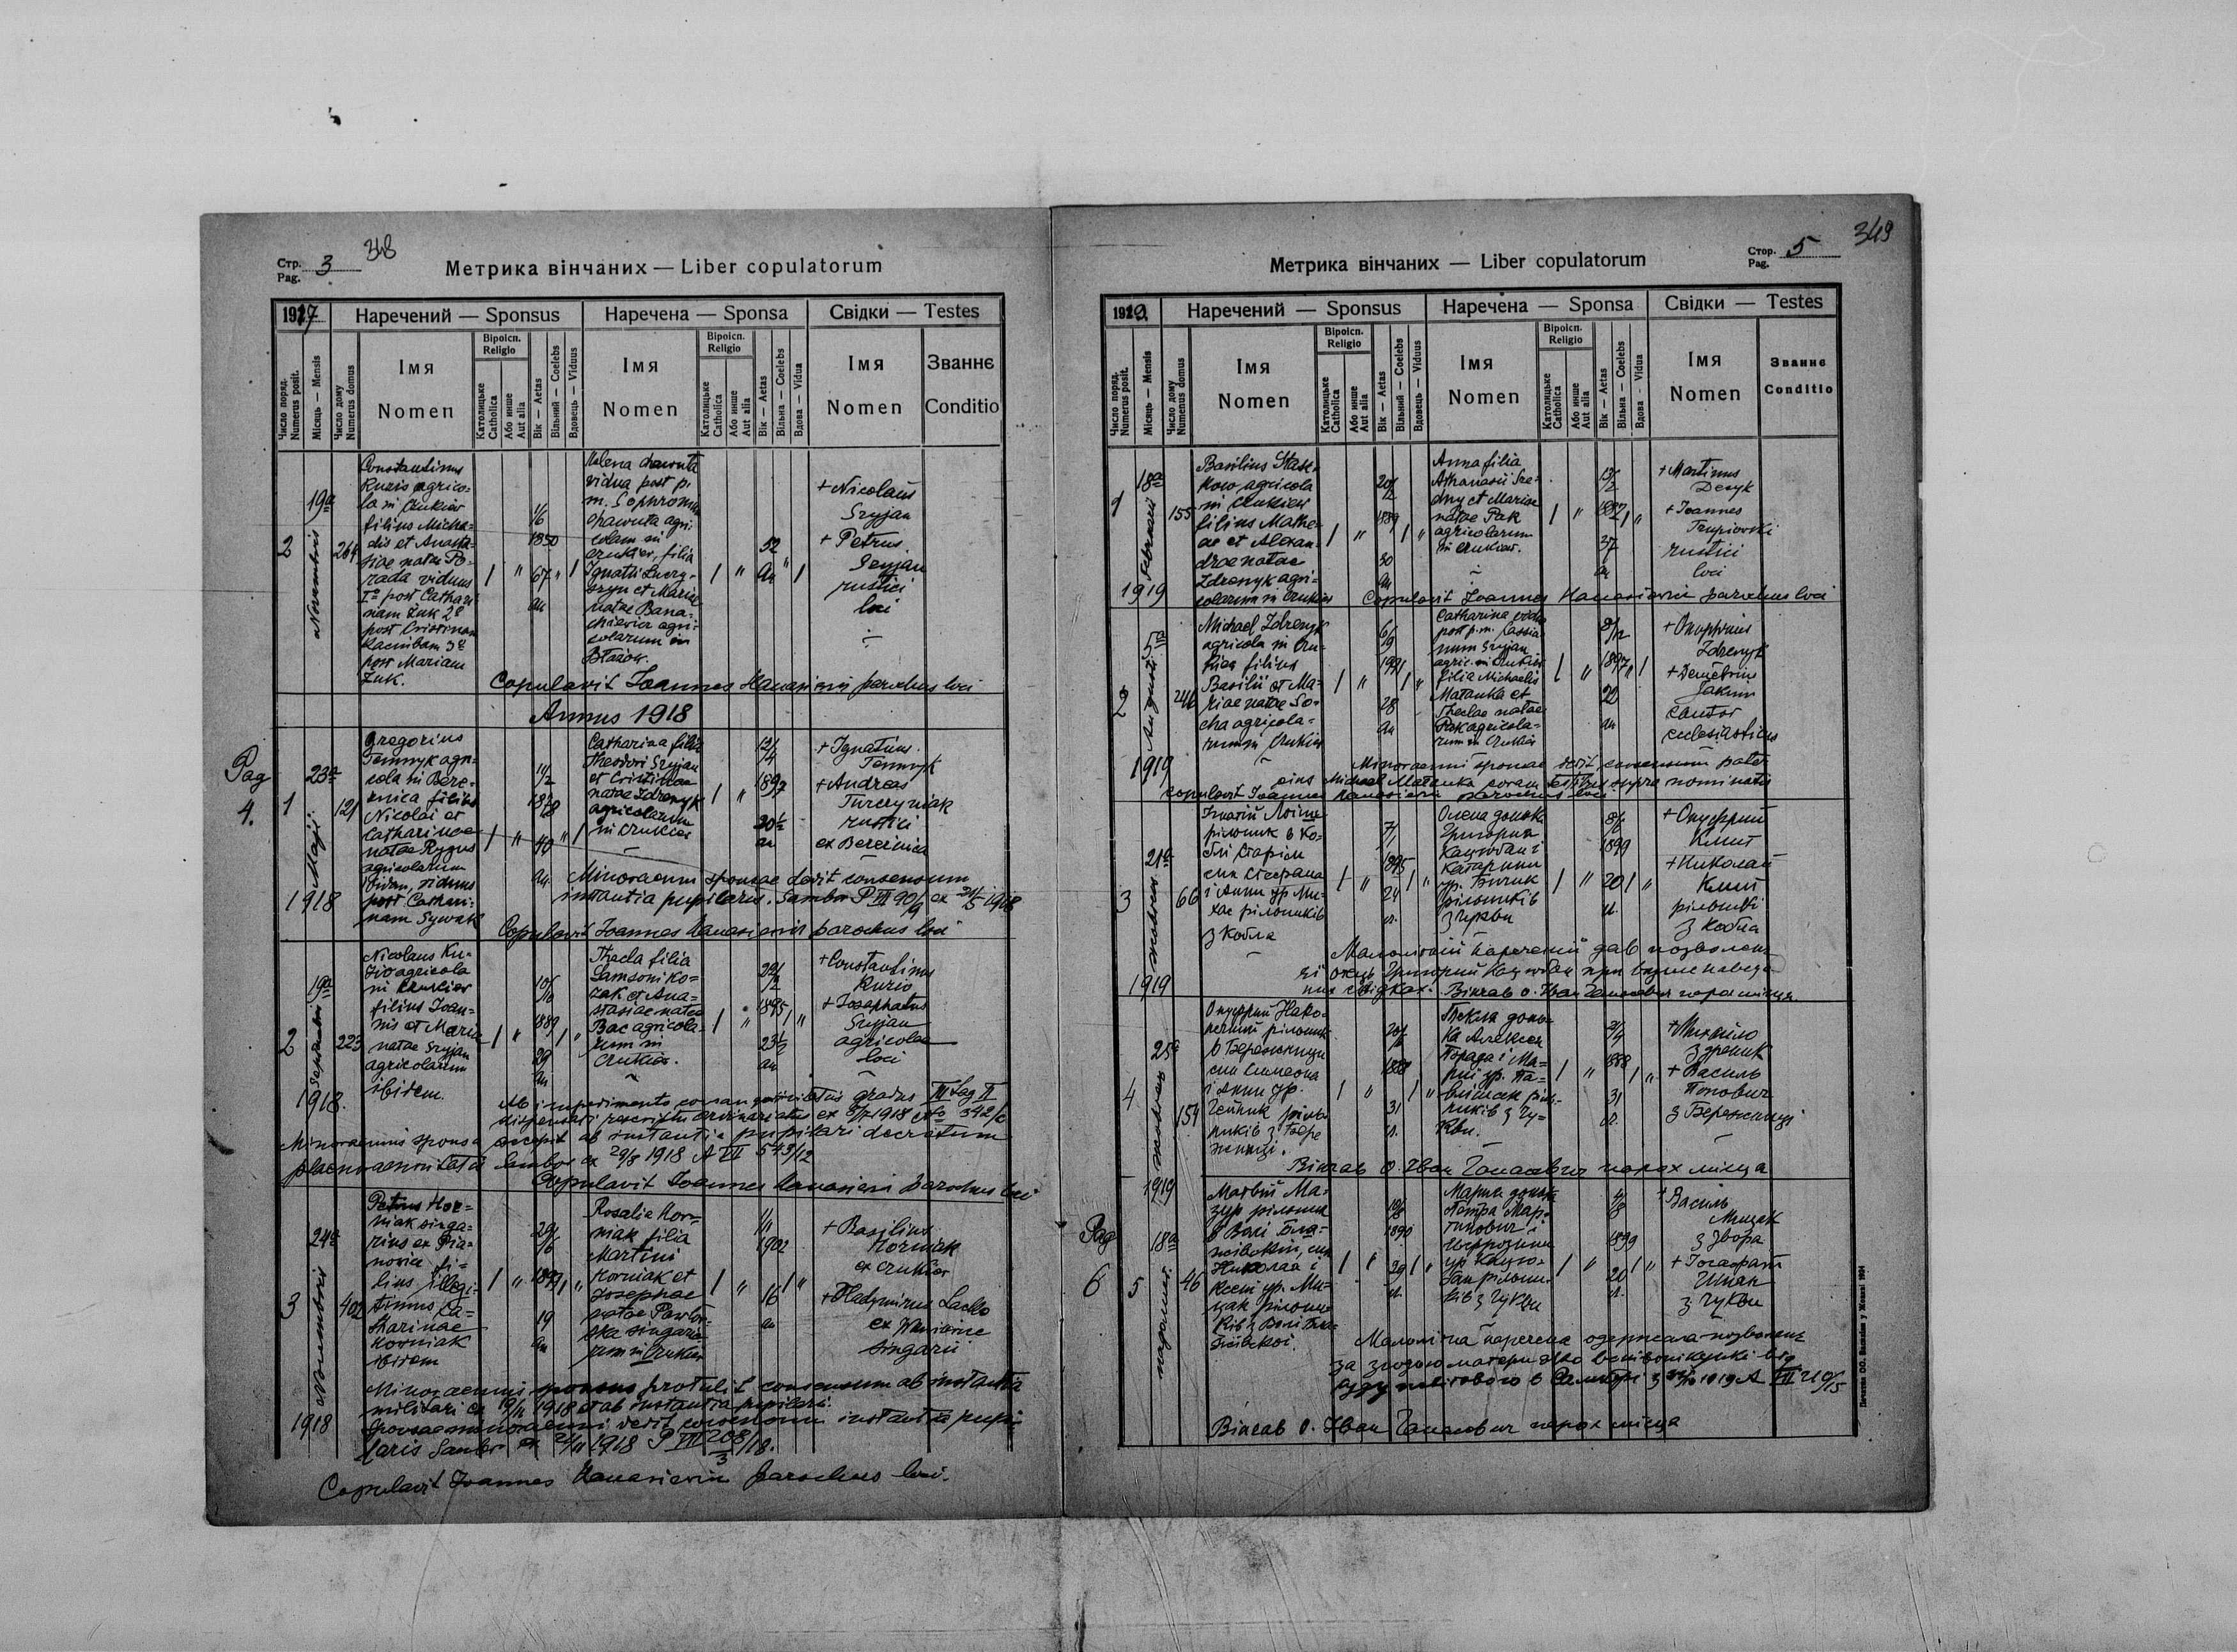 Стр. Pag. 3
348
Метрика вінчаних — Liber copulatorum
1917
Наречений — Sponsus
Наречена — Sponsa
Свідки — Testes
Число поряд. Numerus posit.
Місяць — Mensis
Число дому Numerus domus
Імя Nomen
Віроісп. Religio
Католицьке Catholica
Або инше Aut alia
Вік — Aetas
Вільний — Coelebs
Вдовець — Viduus
Імя Nomen
Віроісп. Religio
Католицьке Catholica
Або инше Aut alia
Вік — Aetas
Вільна — Coelebs
Вдова — Vidua
Імя Nomen
Званнє Conditio
2
19a Novembris
264
Constantinus
Kuzio agrico-
la in Czukiew
filius Micha-
elis et Anasta-
siae natae Po-
rada viduus
I° post Cathari-
nam Żuk 2°
post Cristinam
3°
post Mariam
Żuk.
1850
67
an
vidua post p.
m.
agri-
colam in
Czukiew, filia
Ignatii
et Mariae
natae Bana-
chiewicz agri-
colarum in
Błażów.
52
an
+ Nicolaus
Szyjan
+ Petrus
Szyjan
rustici
loci
Copulavit Joannes Hanasiewicz parochus loci
Annus 1918
Pag
4.
1
23a Maji
1918
121
Gregorius
Temnyk agri-
cola in Bere-
źnica filius
Nicolai et
Catharinae
natae Rygus
agricolarum
ibidem, viduus
post Cathari-
nam Sywak
1878
40
an
Catharina filia
Theodori Szyjan
et Cristinae
natae Zdrenyk
agricolarum
in Czukiew
12/4
1897
20½
an
+ Ignatius
Temnyk
+ Andreas
Turczyniak
rustici
ex Bereźnica
Minoraenni sponsae dedit consensum
instantia pupilaris. Sambor P VII 90/9 ex 21/5 1918
Copulavit Joannes Hanasiewicz parochus loci
2
19a Septembris
1918.
223
Nicolaus Ku-
zio agricola
in Czukiew
filius Joan-
nis et Maria
natae Szyjan
agricolarum
ibidem.
10/10
1889
29
an
Thecla filia
Samsoni Ko-
zak et Ana-
stasiae natae
Bac agricola-
rum in
Czukiew.
1895
23½
an
+ Constantinus
Kuzio
+ Josaphatus
Szyjan
agricolae
loci
Ab impedimento consanguinitatis gradus III tag II
dispensati rescriptu Ordinariatus ex 1918
Minoraennis sponsa accepit ab instantia pupilari decretum
plaenoraennitatis Sambor ex 29/8 1918 A VII 543/12
Copulavit Joannes Hanasiewicz parochus loci
3
24a Novembris
1918
402
Petrus Hor-
niak singa-
rius ex Pia-
nowice fi-
lius illegi-
timus Ca-
tharinae
Korniak
ibidem
29/6
1899
19
an
Rosalia Kor-
niak filia
Martini
Korniak et
Josephae
natae
singario-
rum in Czukiew
1/11
1902
16
an
+ Basilius
Korniak
ex Czukiew
+ Hladymirus Lacko
ex
singarii
Minoraennis sponsus protulit consensum ab instantia
militari ex 19/11 1918 et ab instantia pupilari.
Sponsae minoraenni dedit consensum instantia pupi-
laris Sambor ex 21/11 1918 P VII 208/3/18.
Copulavit Joannes Hanasiewicz parochus loci.
349
Стор. Pag. 5
Метрика вінчаних — Liber copulatorum
1919
Наречений — Sponsus
Наречена — Sponsa
Свідки — Testes
Число поряд. Numerus posit.
Місяць — Mensis
Число дому Numerus domus
Імя Nomen
Віроісп. Religio
Католицьке Catholica
Або инше Aut alia
Вік — Aetas
Вільний — Coelebs
Вдовець — Viduus
Імя Nomen
Віроісп. Religio
Католицьке Catholica
Або инше Aut alia
Вік — Aetas
Вільна — Coelebs
Вдова — Vidua
Імя Nomen
Званнє Conditio
1
18a Februarii
1919
155
Basilius Stas-
kow, agricola
in Czukiew
filius Mathe-
ae et Alexan-
drae natae
Zdrenyk agri-
colarum in Czukiew
1889
30
an
Anna filia
Athanasii Sre-
dny et Mariae
natae Pak
agricolarum
in Czukiew.
37
an
+ Martinus
Denyk
+ Joannes
Trupiowski
rustici
loci
Copulavit Joannes Hanasiewicz parochus loci
2
5a Augusti
1919
246
Michael Zdrenyk
agricola in Czu-
kiew filius
Basilii et Ma-
riae natae So-
cha agricola-
rum in Czukiew
6/9
1891
28
an
Catharina vidua
post p.m. Cassia-
num Szyjan
agric. in Czukiew
filia Michaelis
Matanka et
Theclae natae
Pak agricola-
rum in Czukiew
8/12
1897
22
an
+ Onophrius
Zdrenyk
+ Demetrius
Jakim
cantor
eclesiasticus
Minoraenni sponsae dedit consensum pater
eius Michael Matanka coram testibus supra nominatis
Copulavit Joannes Hanasiewicz parochus loci
3
21a жовтень
1919
66
рільник в Ко-
блі старім
син Стефана
і Анни ур. Ми-
хас рільників
з Кобла
7/1
1895
24
л.
Олена донька
Григорія
Кацюбан і
Катарини
ур. Бичик
рільників
з Чукви
8/6
1899
20
л.
+ Онуфрий
Книш
+ Николай
Книш
рільники
з Кобла
Малолітній нареченій дав позволенє
єї отець Григорий Кацюбан при вище наведе-
них свідках. Вінчав о. Иван Ганасевич парох місця
4
25a
1919
154
Онуфрий Нако-
нечний рільник
в Бережници
син Симеона
і Анни ур.
ріль-
ників з Бере
жниці.
1888
31
л.
Текля донь-
ка Алексея
Порада і Ма-
рії ур. Па-
вліщак ріль-
ників з Чу-
кви.
1888
31
л.
+ Михайло
Здреник
+ Василь
Попович
з Бережниці
Вінчав о. Иван Ганасевич парох місця
Pag
6
5
18a падолист
46
Матвій Ма-
зур рільник
в Воли Бла-
жівській, син
Николая і
Ксені ур. Ми-
цак рільни-
ків з Воли Бла-
жівскої.
1890
29
л.
Мария донька
Петра Мар-
тинович і
Єфрозини
ур Кацю-
бан рільни-
ків з Чукви
4/8
1899
20
л.
+ Василь
Мицак
з Звора
+ Йосафат
Шиян
з Чукви
Малолітна наречена одержала позволенє
за згодою матери яко
суду повітового в Самборі з 1919 А VII 210/15
Вінчав о. Иван Ганасевич парох місця